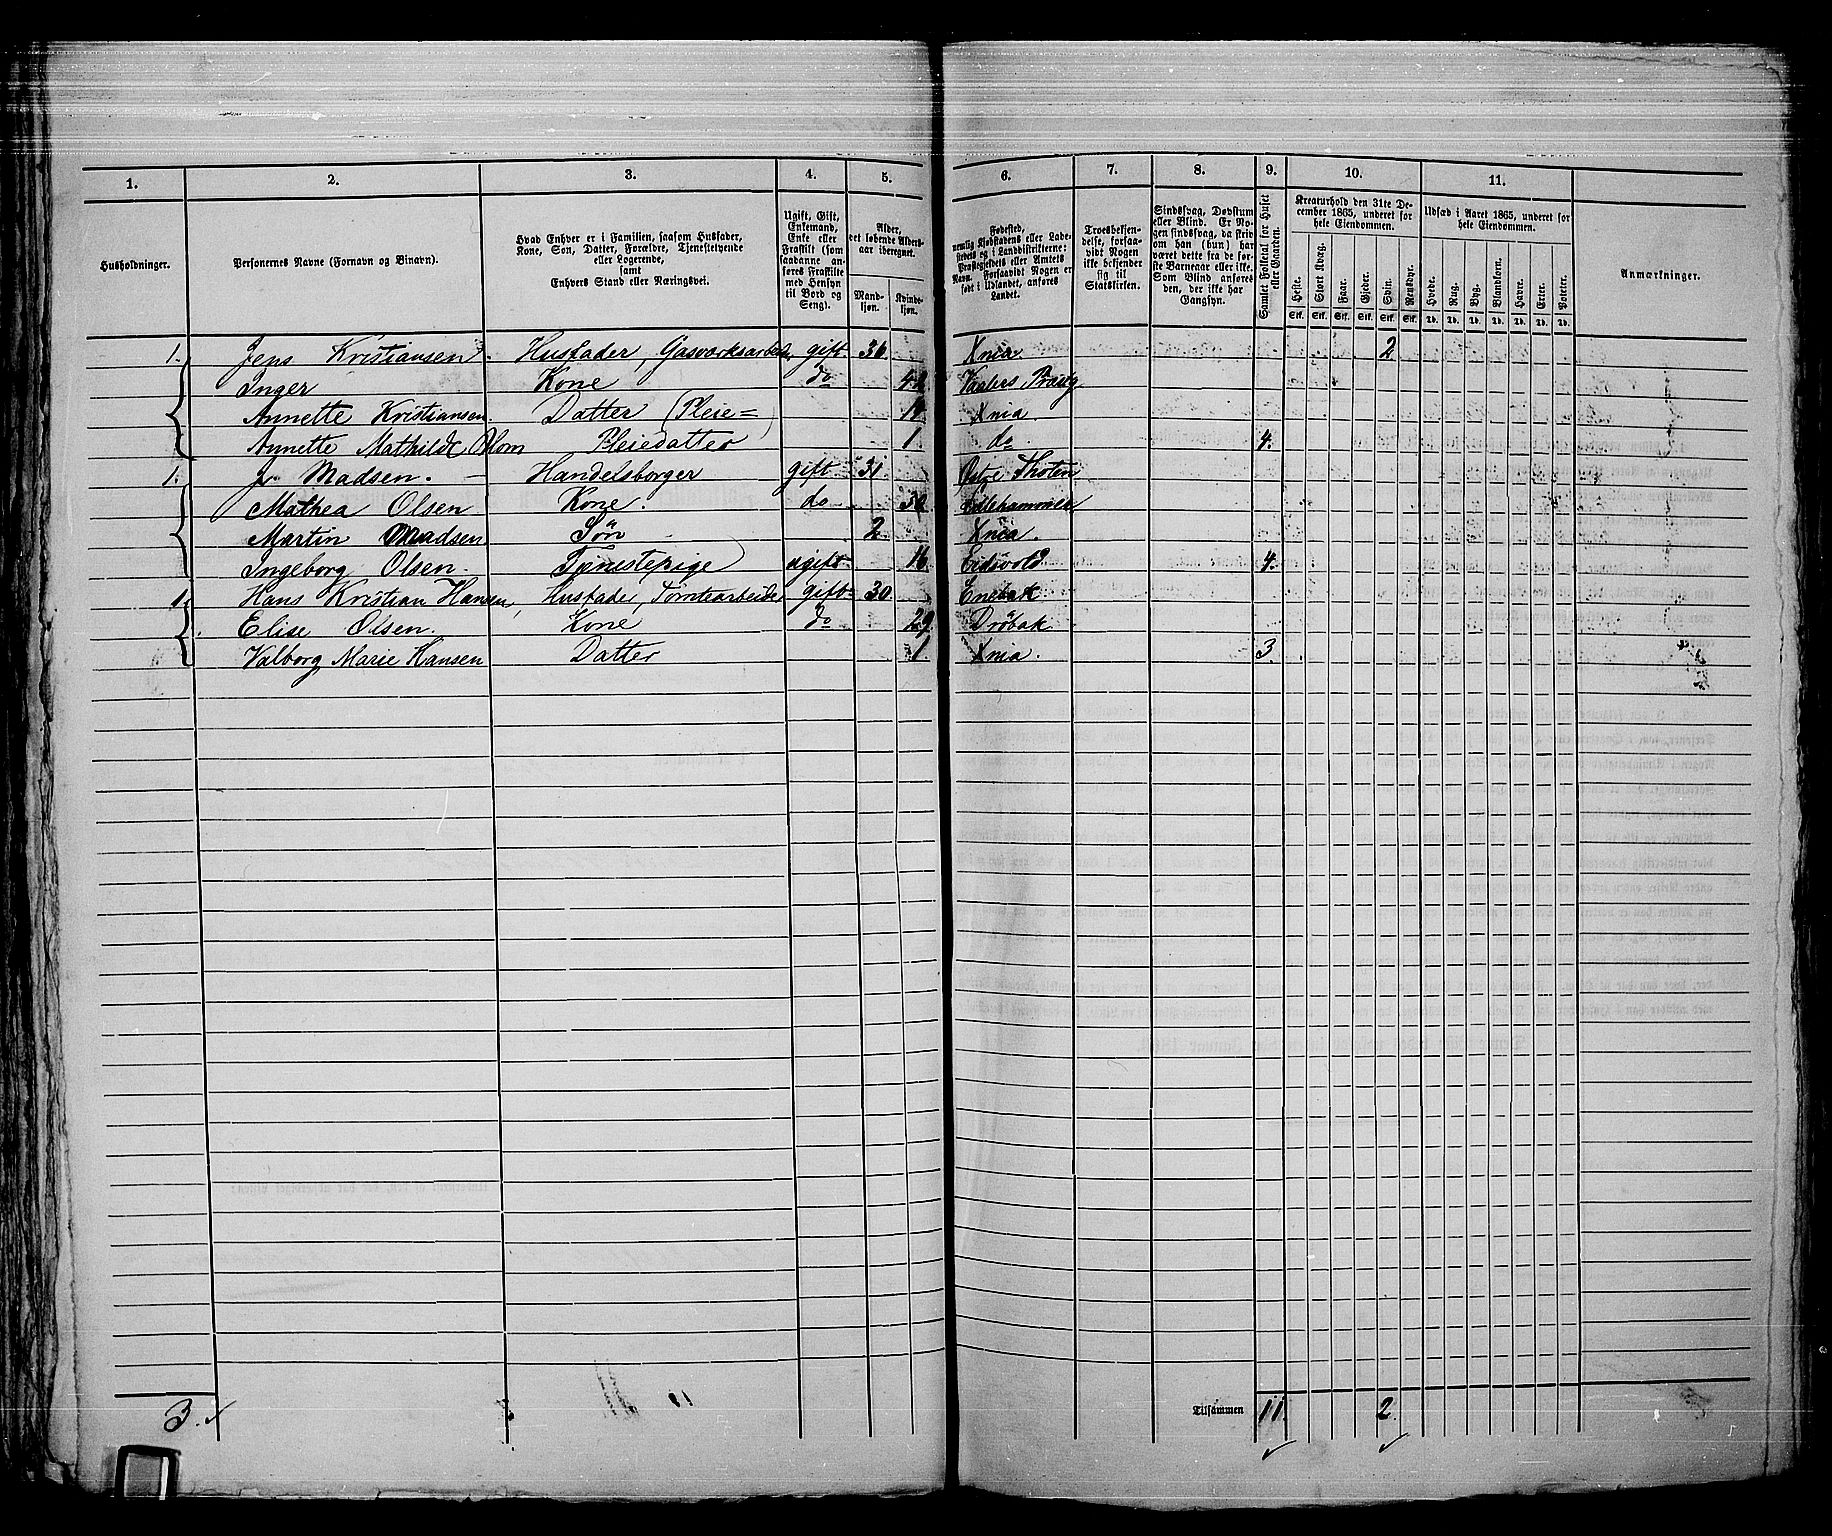 1. 2. 3. 4. 5. 6. 7. 8. 9. 10. 11.
Husholdninger.
Personernes Navne (Fornavn og Binavn).
Hvad Enhver er i Familien, saasom Husfader,
Kone, Søn, Datter, Forældre, Tjenestetyende
eller Logerende,
samt
Enhvers Stand eller Næringsvei.
Ugift, Gift,
Enkemand,
Enke eller
Fraskilt (som
saadanne an-
føres Fraskilte
med Hensyn
til Bord og
Seng).
Alder,
det løbende Alders-
aar iberegnet.
Mand-
kjøn.
Kvinde-
kjøn.
Fødested,
nemlig Kjøbstadens eller Lade-
stedets og i Landdistrikterne:
Præstegjeldets eller Amtets
Navn. Forsaavidt Nogen er
født i Udlandet, anføres
Landet.
Troesbekjen-
delse, forsaa-
vidt Nogen
ikke bekjender
sig til
Statskirken.
Sindssvag, Døvstum
eller Blind. Er No-
gen sindssvag, da skriv
om han (hun) har
været dette fra de før-
ste Barneaar eller ikke.
Som Blind anføres
den, der ikke har
Gangsyn.
Samlet Folketal for Huset
eller Gaarden.
Kreaturhold den 31te De-
cember 1865, underet for
hele Eiendommen.
Heste. Stort Kvæg. Faar. Gjeder. Svin. Rensdyr.
Stk. Stk. Stk. Stk. Stk. Stk.
Udsæd i Aaret 1865, underet for
hele Eiendommen.
Hvede. Rug. Byg. Blandkorn. Havre. Erter. Poteter.
Td. Td. Td. Td. Td. Td. Td.
Anmærkninger.
1. Jens Kristiansen. Husfader, Gasværksarbeid. gift 36 Xnia 2
Inger Kone do 42 Vaalers Præstg
Annette Kristiansen. Datter (Pleie=) 14 Xnia.
Annette Mathilde Blom Pleiedatter 1 do. 4.
1. J. Madsen. Handelsborger gift 31 Østre Thoten
Mathea Olsen Kone. do 30 Lillehammer
Martin Madsen Søn 2 Xnia.
Ingeborg Olsen. Tjenestepige ugift 16 Eidsvold 4.
1 Hans Kristian Hansen, Husfader, Tomtearbeider gift 30 Enebak
Elise Olsen. Kone do 29 Drøbak
Valborg Marie Hansen Datter 1 Xnia. 3.
3. Tilsammen 11. 2.